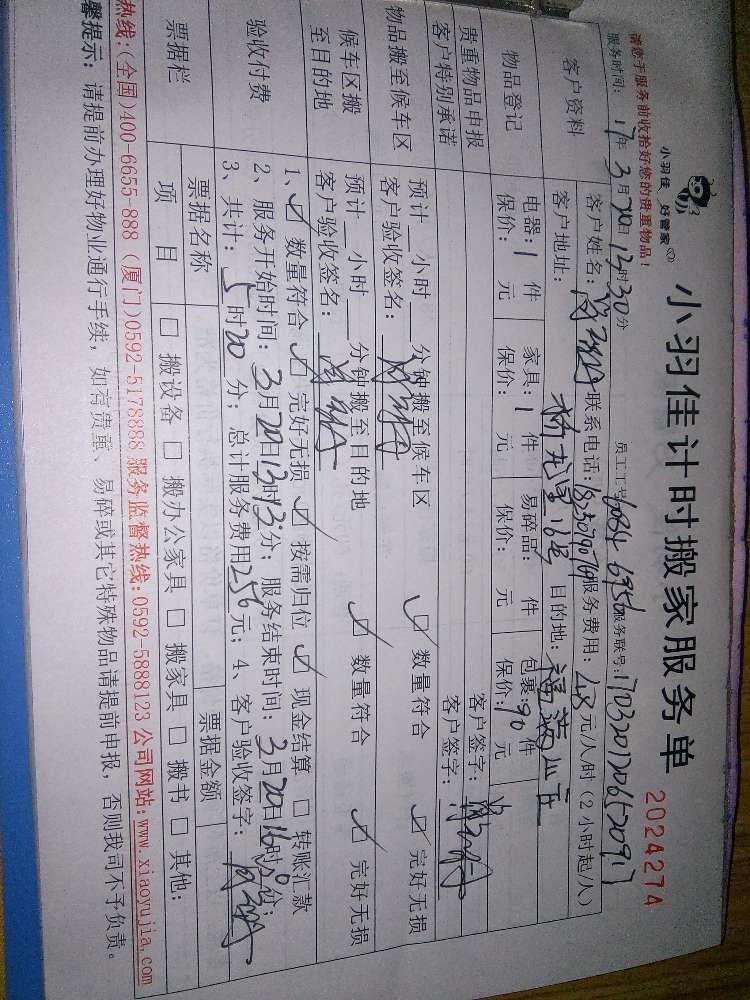 小羽佳 好管家
小羽佳计时搬家服务单
2024274
请您于服务前收拾好您的贵重物品！
服务时间： 17年3月20日13时30分
员工工号
服务联号：
客户资料
客户姓名：
联系电话：
服务费用：48元/人/时（2小时起/人）
客户地址：
目的地：
物品登记
电器：1件 家具：1件 易碎品： 件 包裹：90件
保价： 元 保价： 元 保价： 元 保价： 元
贵重物品申报
客户签字：
客户特别承诺
客户签字：
物品搬至候车区
预计__小时__分钟搬至候车区
客户验收签名：
☑ 数量符合 ☑ 完好无损
候车区搬至目的地
预计__小时__分钟搬至目的地
客户验收签名：
☑ 数量符合 ☑ 完好无损
验收付费
1、☑ 数量符合 ☑ 完好无损 ☑ 按需归位 ☑ 现金结算 □ 转账汇款
2、服务开始时间：3月20日13时13分；服务结束时间：3月20日16时 分；
3、共计：5时20分；总计服务费用256元；4、客户验收签字：
票据栏
票据名称
票据金额
项 目
□ 搬设备 □ 搬办公家具 □ 搬家具 □ 搬书 □ 其他：
热线：(全国)400-6655-888 (厦门)0592-5178888 服务监督热线：0592-5888123 公司网站：www.xiaoyujia.com
馨提示：请提前办理好物业通行手续，如有贵重、易碎或其它特殊物品请提前申报，否则我司不予负责。